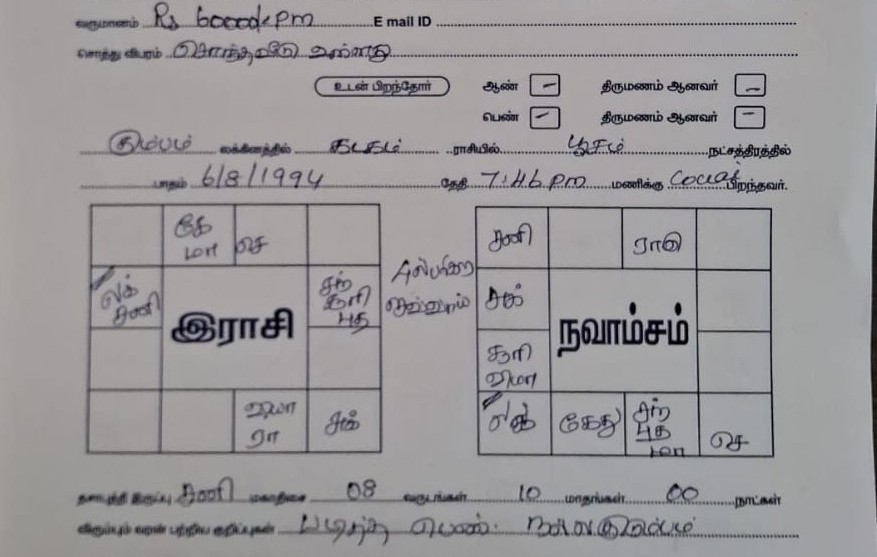 வருமானம் Rs 60000/- pm E mail ID
சொத்து விபரம் சொந்தவீடு உள்ளது
உடன் பிறந்தோர் ஆண் - திருமணம் ஆனவர் -
பெண் - திருமணம் ஆனவர் -
கும்பம் லக்கினத்தில் கடகம் ராசியில் பூசம் நட்சத்திரத்தில்
பாதம் 6/8/1994 தேதி 7:46 pm மணிக்கு பிறந்தவர்.
கே
மா செ
லக்
சனி
இராசி
சந்
சூரி
புத
வியா
ரா
சுக்
சனி ராகு
சுக்
நவாம்சம்
சூரி
வியா
லக் கேது சந்
புத
மா
செ
தசாபுத்தி இருப்பு சனி மகாதிசை 08 வருடங்கள் 10 மாதங்கள் 00 நாட்கள்
விரும்பும் வரன் பற்றிய குறிப்புகள் படித்த பெண். நல்ல குடும்பம்